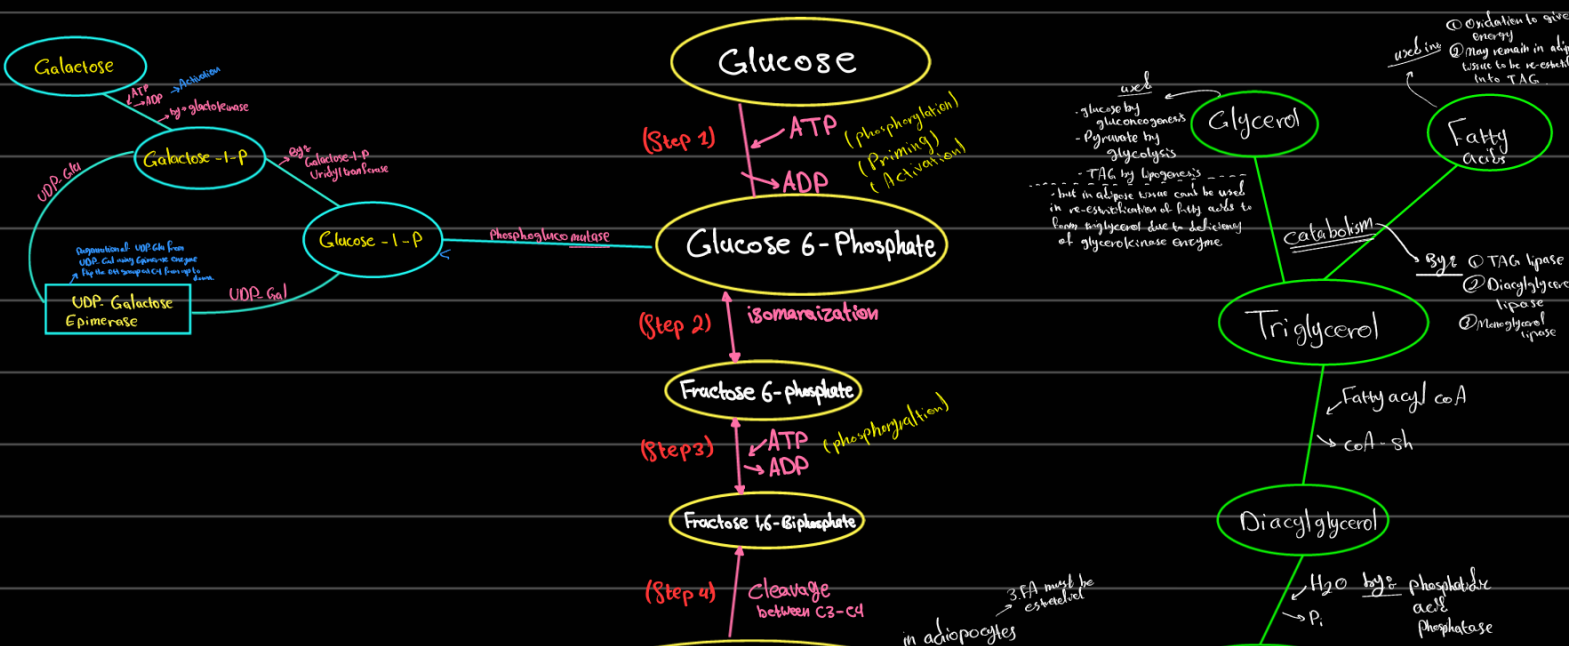 Galactose
ATP
→ADP
→Activation
by: glactokinase
Galactose-1-P
By:
Galactose-1-P
Uridyltranferase
UDP-Glu
Glucose-1-P
UDP-Gal using Epimerase enzyme
UDP-Galactose
Epimerase
UDP-Gal
Phosphogluco mutase
Glucose
(Step 1)
ATP
ADP
(phosphorylation)
(Priming)
(Activation)
Glucose 6-Phosphate
(Step 2)
isomaraization
Fractose 6-phosphate
(Step3)
ATP
ADP
(phosphorylaltion)
Fractose 1,6-Biphosphate
(Step 4)
Cleavage
between C3-C4
in adiopocytes
3.FA must be
used
- glucose by
gluconeogenesis
- Pyruvate by
glycolysis
- TAG by lipogenesis
- but in adipose tissue cannt be used
in re-estrification of fatty acids to
form triglycerol due to deficiency
of glycerokinase enzyme
Glycerol
used in:
① Oxidation to give
energy
② May remain in adip
tissue to be re-esteri
into TAG
Fatty
acids
catabolism
By: ① TAG lipase
② Diacylglycero
lipase
③ Monoglycerol
lipase
Triglycerol
Fatty acyl coA
coA-sh
Diacylglycerol
H2O by: phosphatidic
acid
phosphatase
Pi